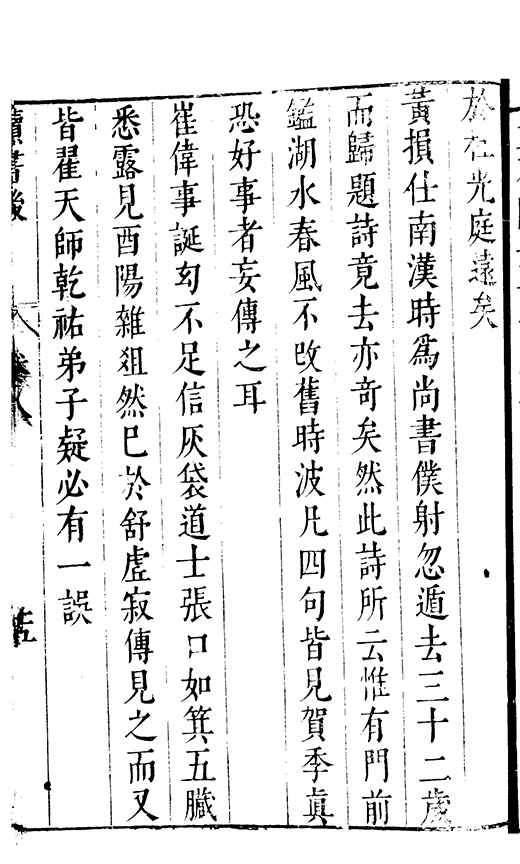 於杜光庭遠矣
黃損仕南漢時爲尚書僕射忽遁去三十二歲
而歸題詩竟去亦竒矣然此詩所云惟有門前
鑑湖水春風不攺舊時波凡四句皆見賀季眞
恐好事者妄傳之耳
崔偉事誕幻不足信灰袋道士張口如箕五臟
悉露見酉陽雜爼然巳於舒虚寂傳見之而又
皆翟天師乾祐弟子疑必有一誤
讀書後
卷八